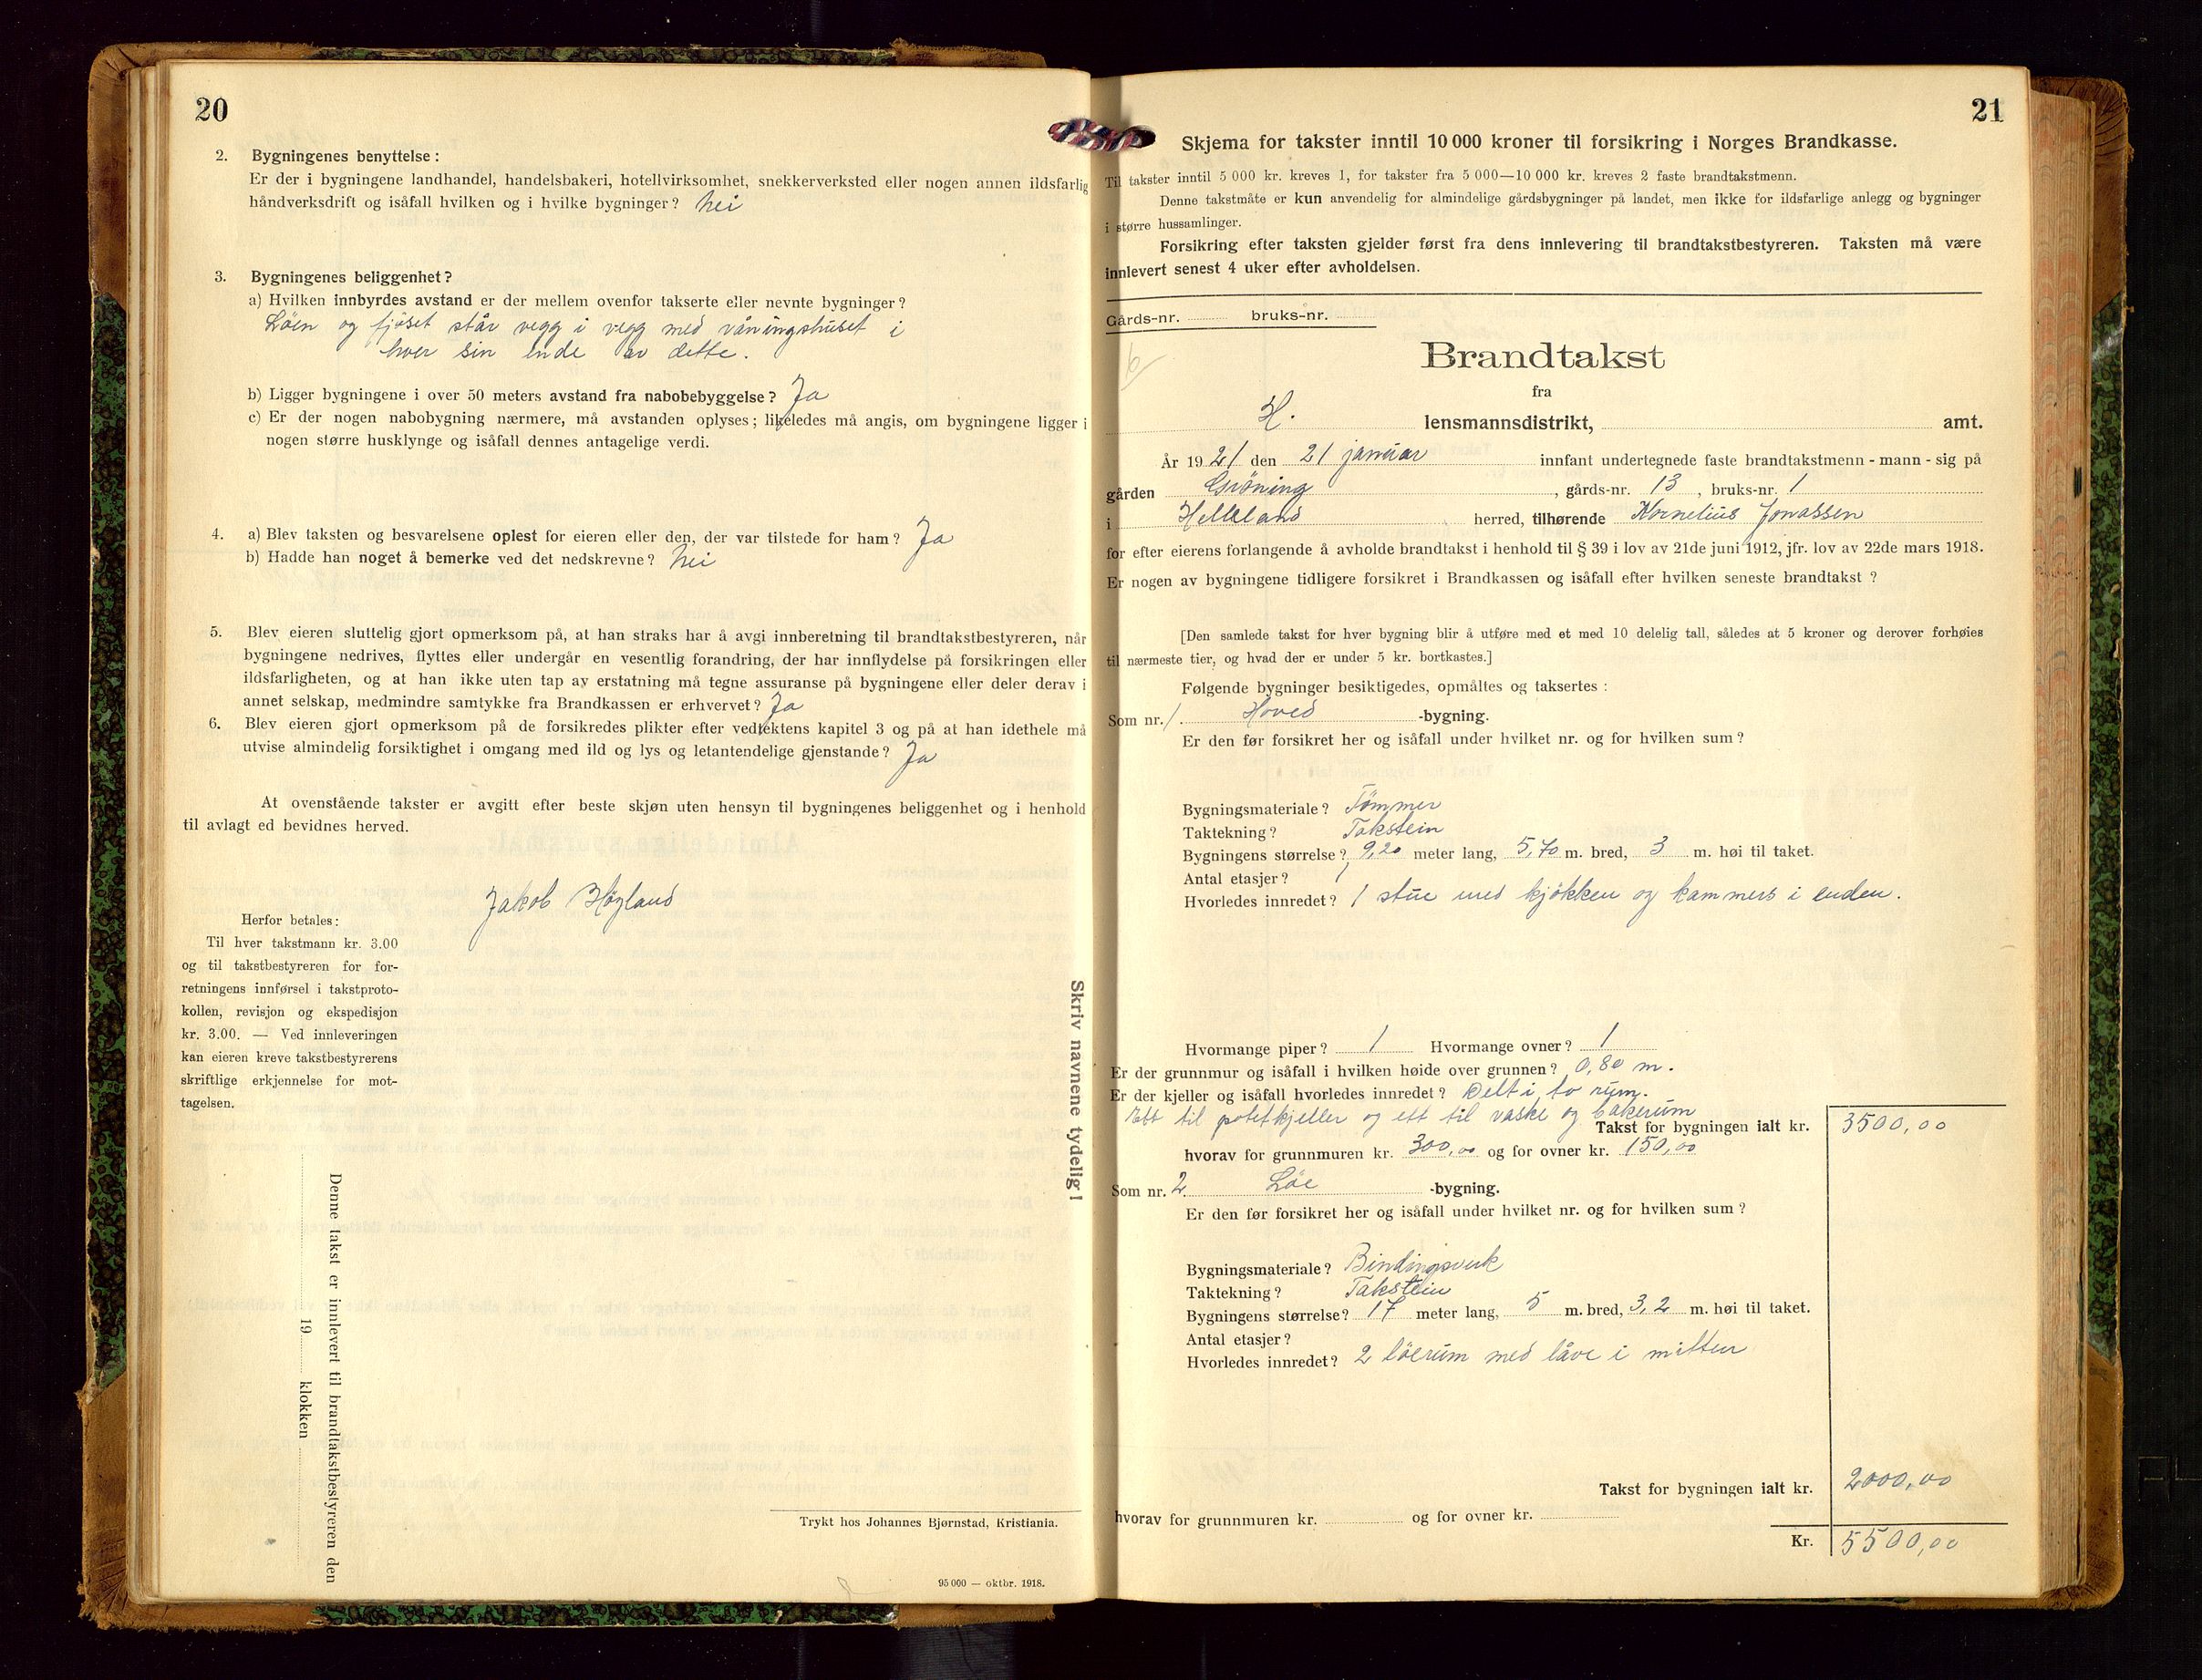 20
2. Bygningenes benyttelse:
Er der i bygningene landhandel, handelsbakeri, hotellvirksomhet, snekkerverksted eller nogen annen ildsfarlig
håndverksdrift og isåfall hvilken og i hvilke bygninger? Nei
3. Bygningenes beliggenhet?
a) Hvilken innbyrdes avstand er der mellem ovenfor takserte eller nevnte bygninger?
Löen og fjöset står vegg i vegg med våningshuset i
hver sin ende av dette.
b) Ligger bygningene i over 50 meters avstand fra nabobebyggelse? Ja
c) Er der nogen nabobygning nærmere, må avstanden oplyses; likeledes må angis, om bygningene ligger i
nogen større husklynge og isåfall dennes antagelige verdi.
4. a) Blev taksten og besvarelsene oplest for eieren eller den, der var tilstede for ham? Ja
b) Hadde han noget å bemerke ved det nedskrevne? Nei
5. Blev eieren sluttelig gjort opmerksom på, at han straks har å avgi innberetning til brandtakstbestyreren, når
bygningene nedrives, flyttes eller undergår en vesentlig forandring, der har innflydelse på forsikringen eller
ildsfarligheten, og at han ikke uten tap av erstatning må tegne assuranse på bygningene eller deler derav i
annet selskap, medmindre samtykke fra Brandkassen er erhvervet? Ja
6. Blev eieren gjort opmerksom på de forsikredes plikter efter vedtektens kapitel 3 og på at han idethele må
utvise almindelig forsiktighet i omgang med ild og lys og letantendelige gjenstande? Ja
At ovenstående takster er avgitt efter beste skjøn uten hensyn til bygningenes beliggenhet og i henhold
til avlagt ed bevidnes herved.
Jakob Høyland
Herfor betales:
Til hver takstmann kr. 3.00
og til takstbestyreren for for-
retningens innførsel i takstproto-
kollen, revisjon og ekspedisjon
kr. 3.00. — Ved innleveringen
kan eieren kreve takstbestyrerens
skriftlige erkjennelse for mot-
tagelsen.
Skriv navnene tydelig!
Denne takst er innlevert til brandtakstbestyreren den
19 klokken
Trykt hos Johannes Bjørnstad, Kristiania.
95 000 — oktbr. 1918.
21
Skjema for takster inntil 10 000 kroner til forsikring i Norges Brandkasse.
Til takster inntil 5 000 kr. kreves 1, for takster fra 5 000—10 000 kr. kreves 2 faste brandtakstmenn.
Denne takstmåte er kun anvendelig for almindelige gårdsbygninger på landet, men ikke for ildsfarlige anlegg og bygninger
i større hussamlinger.
Forsikring efter taksten gjelder først fra dens innlevering til brandtakstbestyreren. Taksten må være
innlevert senest 4 uker efter avholdelsen.
Gårds-nr. bruks-nr.
Brandtakst
fra
H. lensmannsdistrikt, amt.
År 1921 den 21 januar innfant undertegnede faste brandtakstmenn - mann - sig på
gården Gröning, gårds-nr. 13, bruks-nr. 1
i Helleland herred, tilhørende Kornelius Jonassen
for efter eierens forlangende å avholde brandtakst i henhold til § 39 i lov av 21de juni 1912, jfr. lov av 22de mars 1918.
Er nogen av bygningene tidligere forsikret i Brandkassen og isåfall efter hvilken seneste brandtakst?
[Den samlede takst for hver bygning blir å utføre med et med 10 delelig tall, således at 5 kroner og derover forhøies
til nærmeste tier, og hvad der er under 5 kr. bortkastes.]
Følgende bygninger besiktigedes, opmåltes og taksertes:
Som nr. 1. Hoved -bygning.
Er den før forsikret her og isåfall under hvilket nr. og for hvilken sum?
Bygningsmateriale? Tömmer
Taktekning? Takstein
Bygningens størrelse? 9,20 meter lang, 5,70 m. bred, 3 m. høi til taket.
Antal etasjer? 1
Hvorledes innredet? 1 stue med kjökken og kammers i enden.
Hvormange piper? 1 Hvormange ovner? 1
Er der grunnmur og isåfall i hvilken høide over grunnen? 0,80 m.
Er der kjeller og isåfall hvorledes innredet? Delt i to rum.
Ett til potetkjeller og ett til vaske og bakerum
Takst for bygningen ialt kr. 3500,00
hvorav for grunnmuren kr. 300,00 og for ovner kr. 150,00
Som nr. 2 Löe -bygning.
Er den før forsikret her og isåfall under hvilket nr. og for hvilken sum?
Bygningsmateriale? Bindingsverk
Taktekning? Takstein
Bygningens størrelse? 17 meter lang, 5 m. bred, 3,2 m. høi til taket.
Antal etasjer?
Hvorledes innredet? 2 löerum med låve i mitten
Takst for bygningen ialt kr. 2000,00
hvorav for grunnmuren kr. og for ovner kr.
Kr. 5500,00